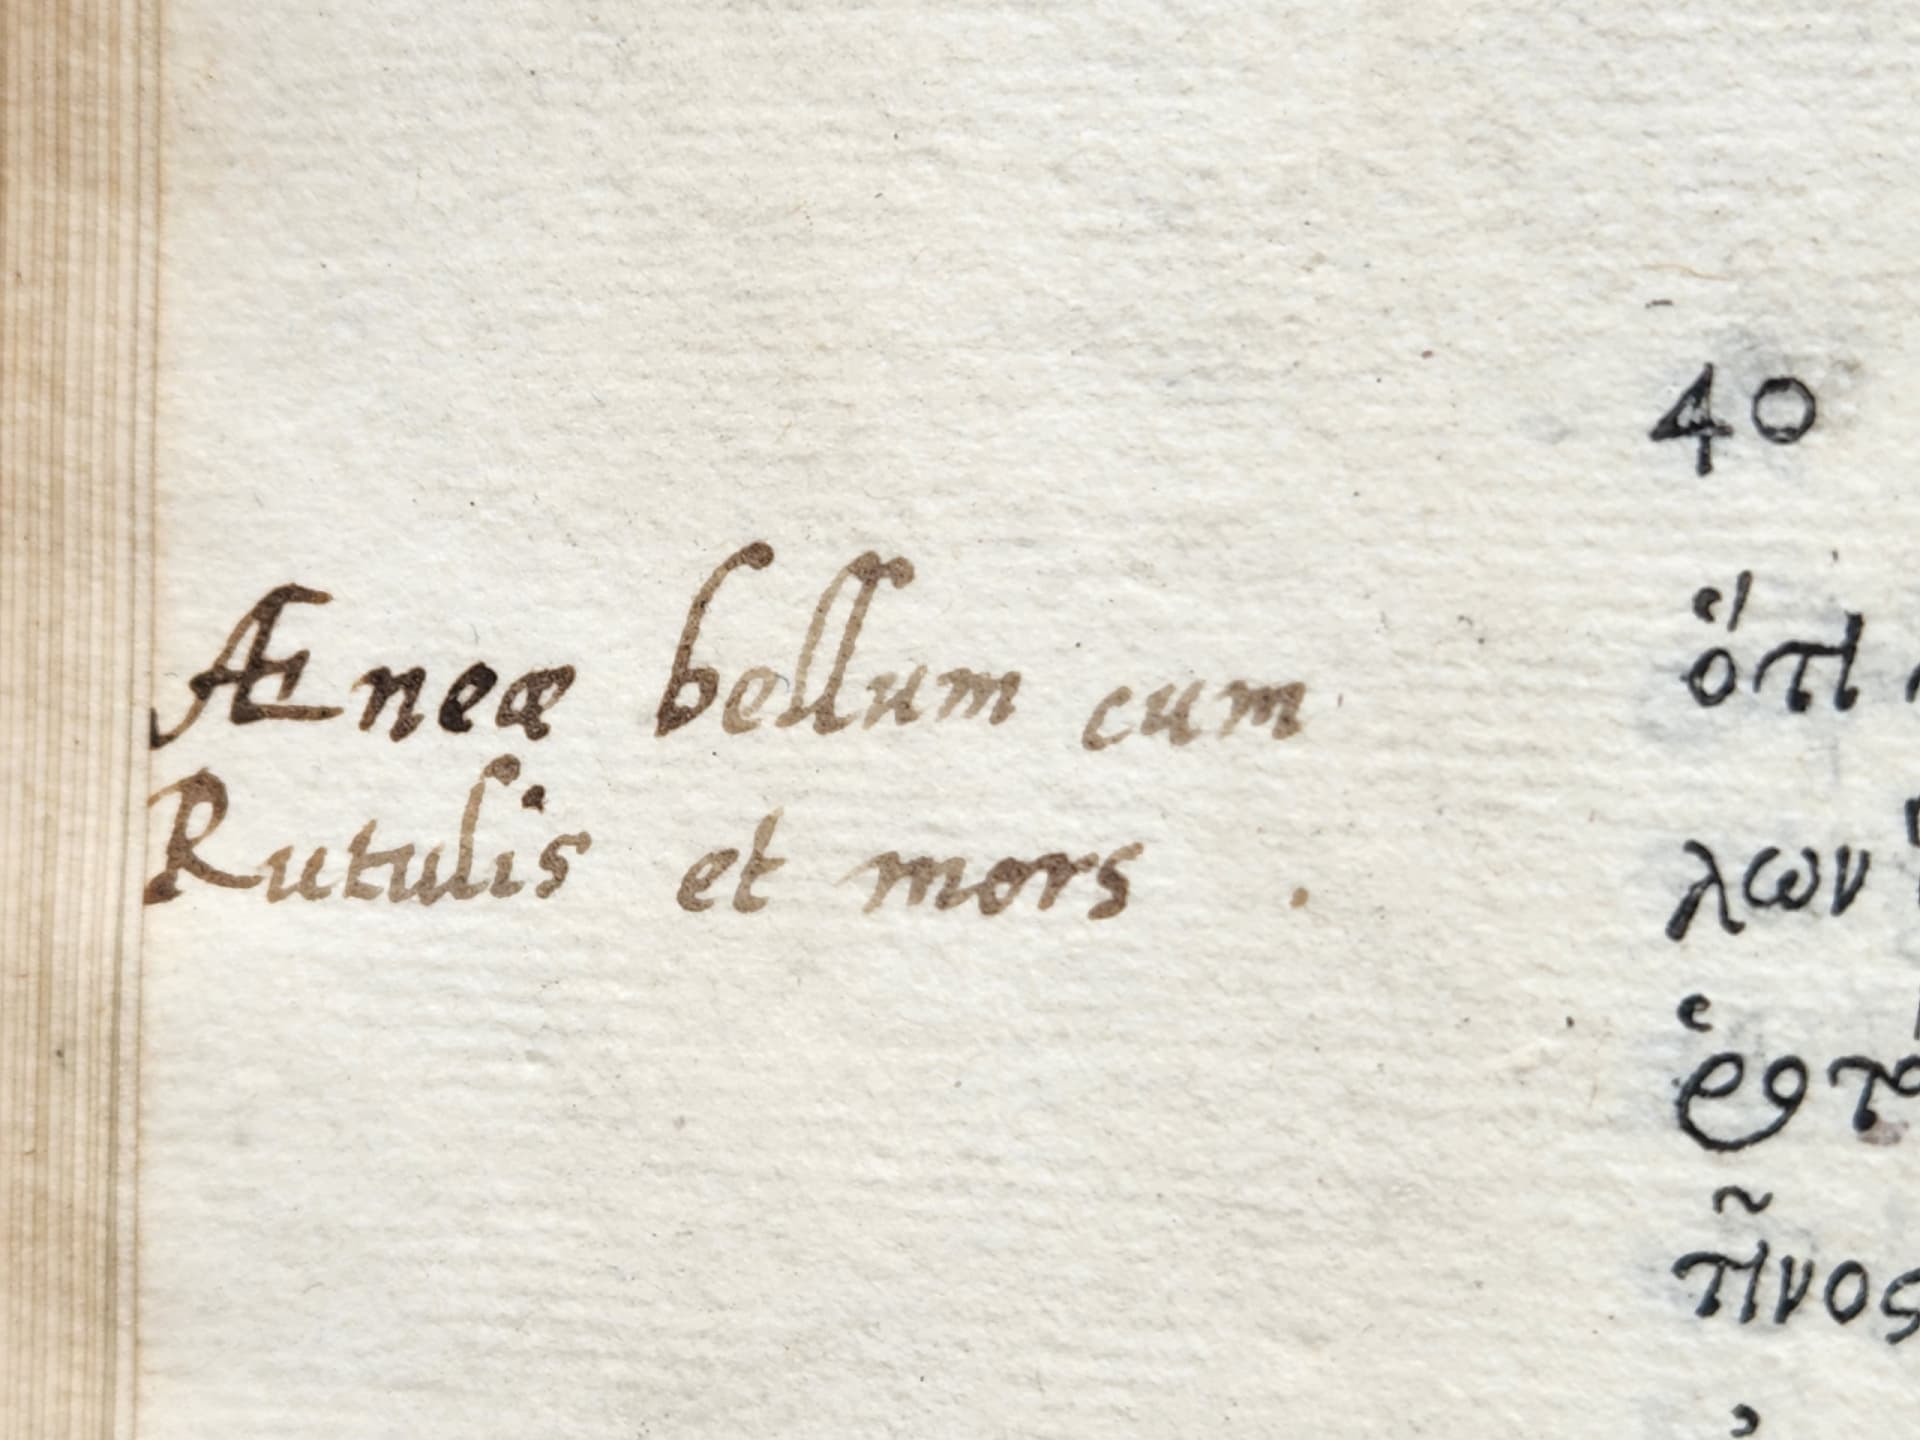 Æneæ bellum cum
Rutulis et mors .
40
ὅτι
λων
τῖνος